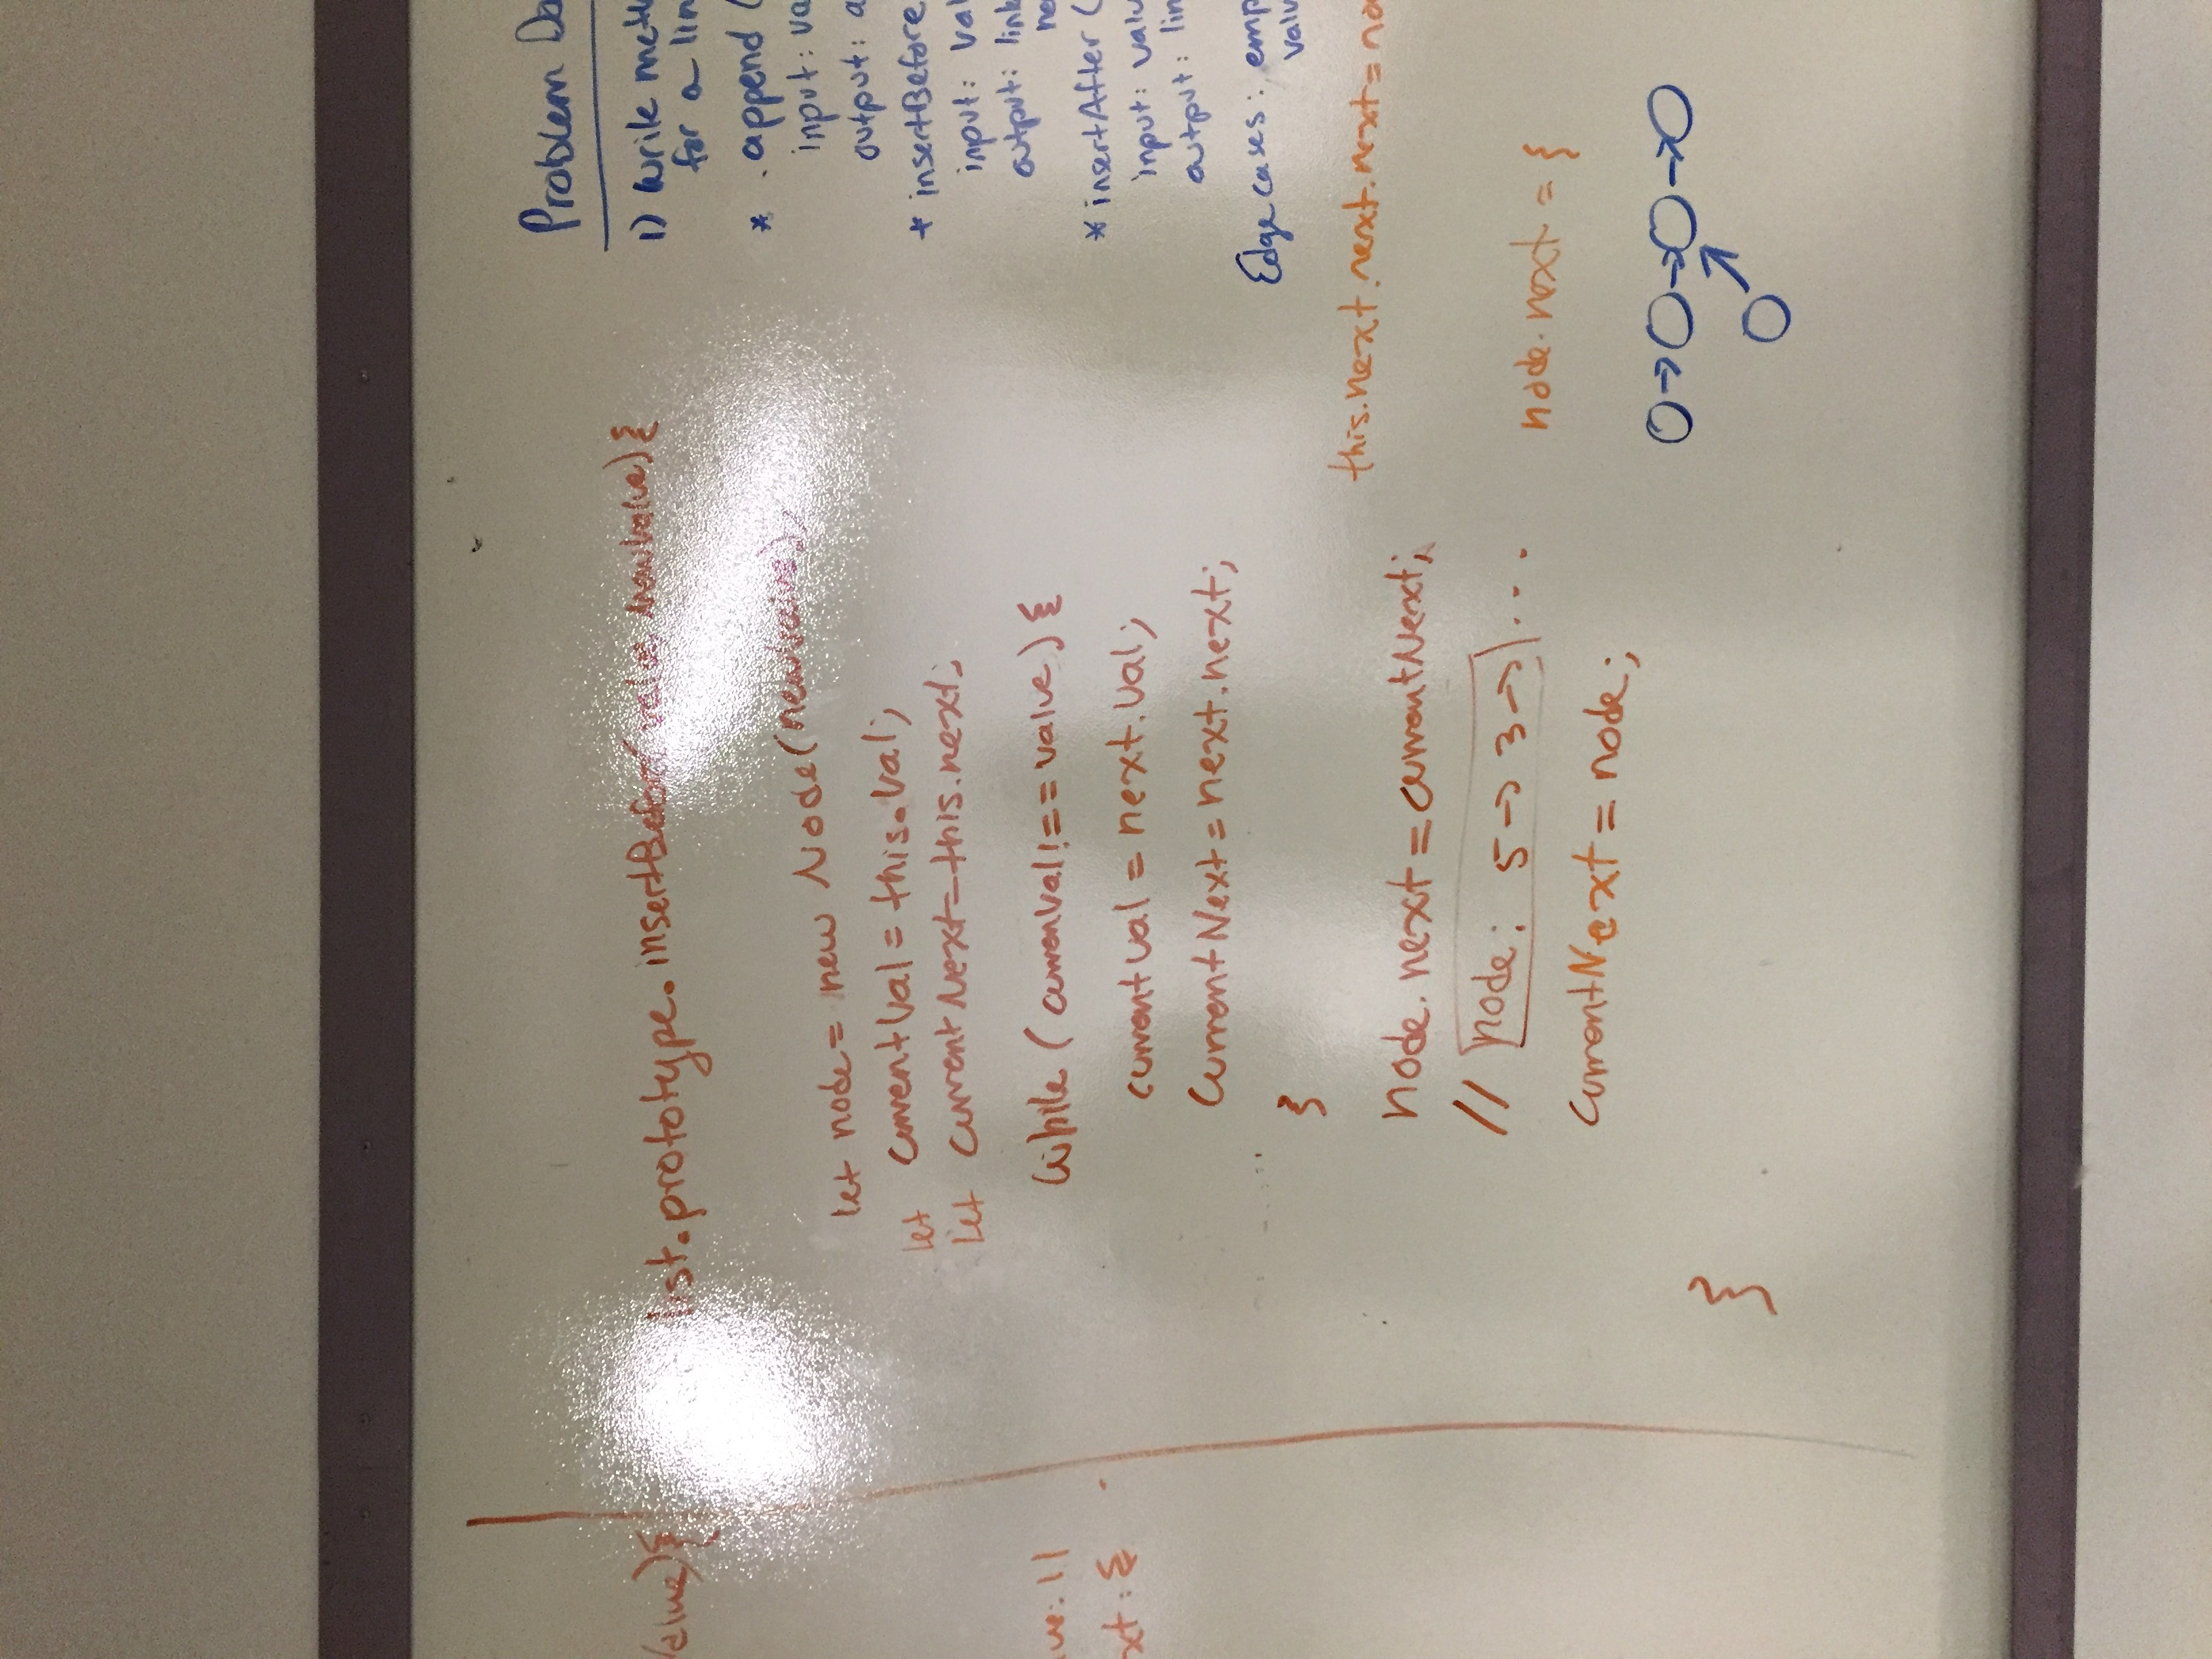 value){
list.prototype.insertBefore(value, newvalue){
let node = new Node(newvalue);
let currentVal = this.val;
let currentNext = this.next;
while (currenVal !== value) {
currentval = next.val;
currentNext = next.next;
}
node.next = currentNext;
// node: 5 -> 3 -> ...
currentNext = node;
}
ue: 11
xt: {
Problem Do
1) Write meth
for a lin
* .append (
input: va
output: a
* insertBefore
input: val
output: link
ne
* insertAfter (
input: valu
output: lin
Edge cases: emp
valu
this.next.next.next = no
node.next = {